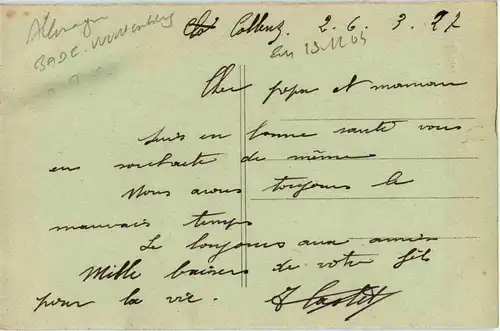 Allemagne
BADE-WURTEMBERG
Coblenz 2.6.3.27
Cher papa et maman
Suis en bonne santé vous
en souhaite de même
Nous avons toujours le
mauvais temps
Le bonjour aux amis
Mille baisers de votre fils
pour la vie.